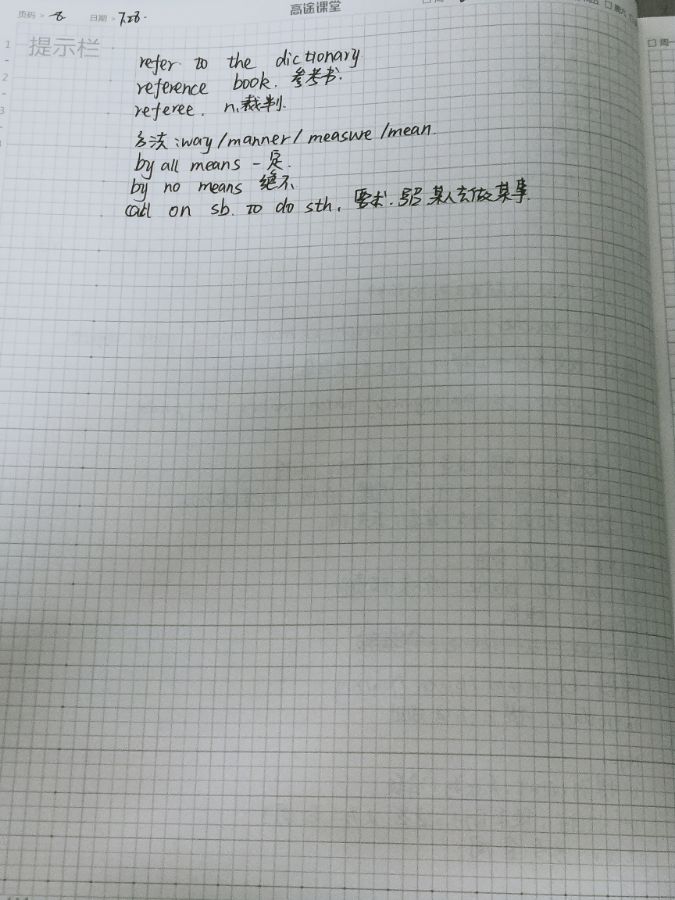 高途课堂
页码 > 6 日期 > 7.28.
提示栏
refer to the dictionary
reference book. 参考书.
referee. n.裁判.
方法:way/manner/measure/mean.
by all means 一定.
by no means 绝不
call on sb. to do sth. 要求.号召 某人去做某事.
1
2
3